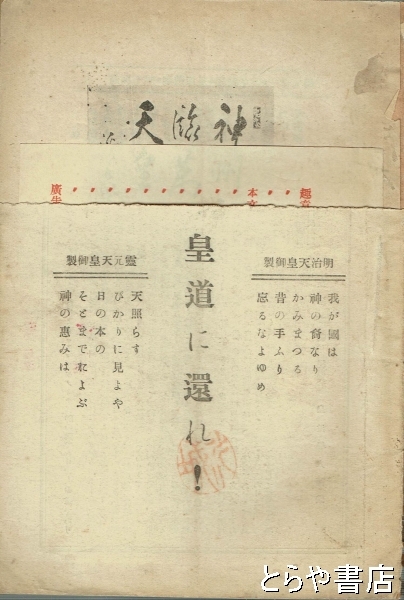 神臨天
趣意
本文
廣告
皇道に還れ!
明治天皇御製
我が國は
神の裔なり
かみまつる
昔の手ぶり
忘るなよゆめ
靈元天皇御製
天照らす
ひかりに見よや
日の本の
そとまでおよぶ
神の惠みは
とらや書店